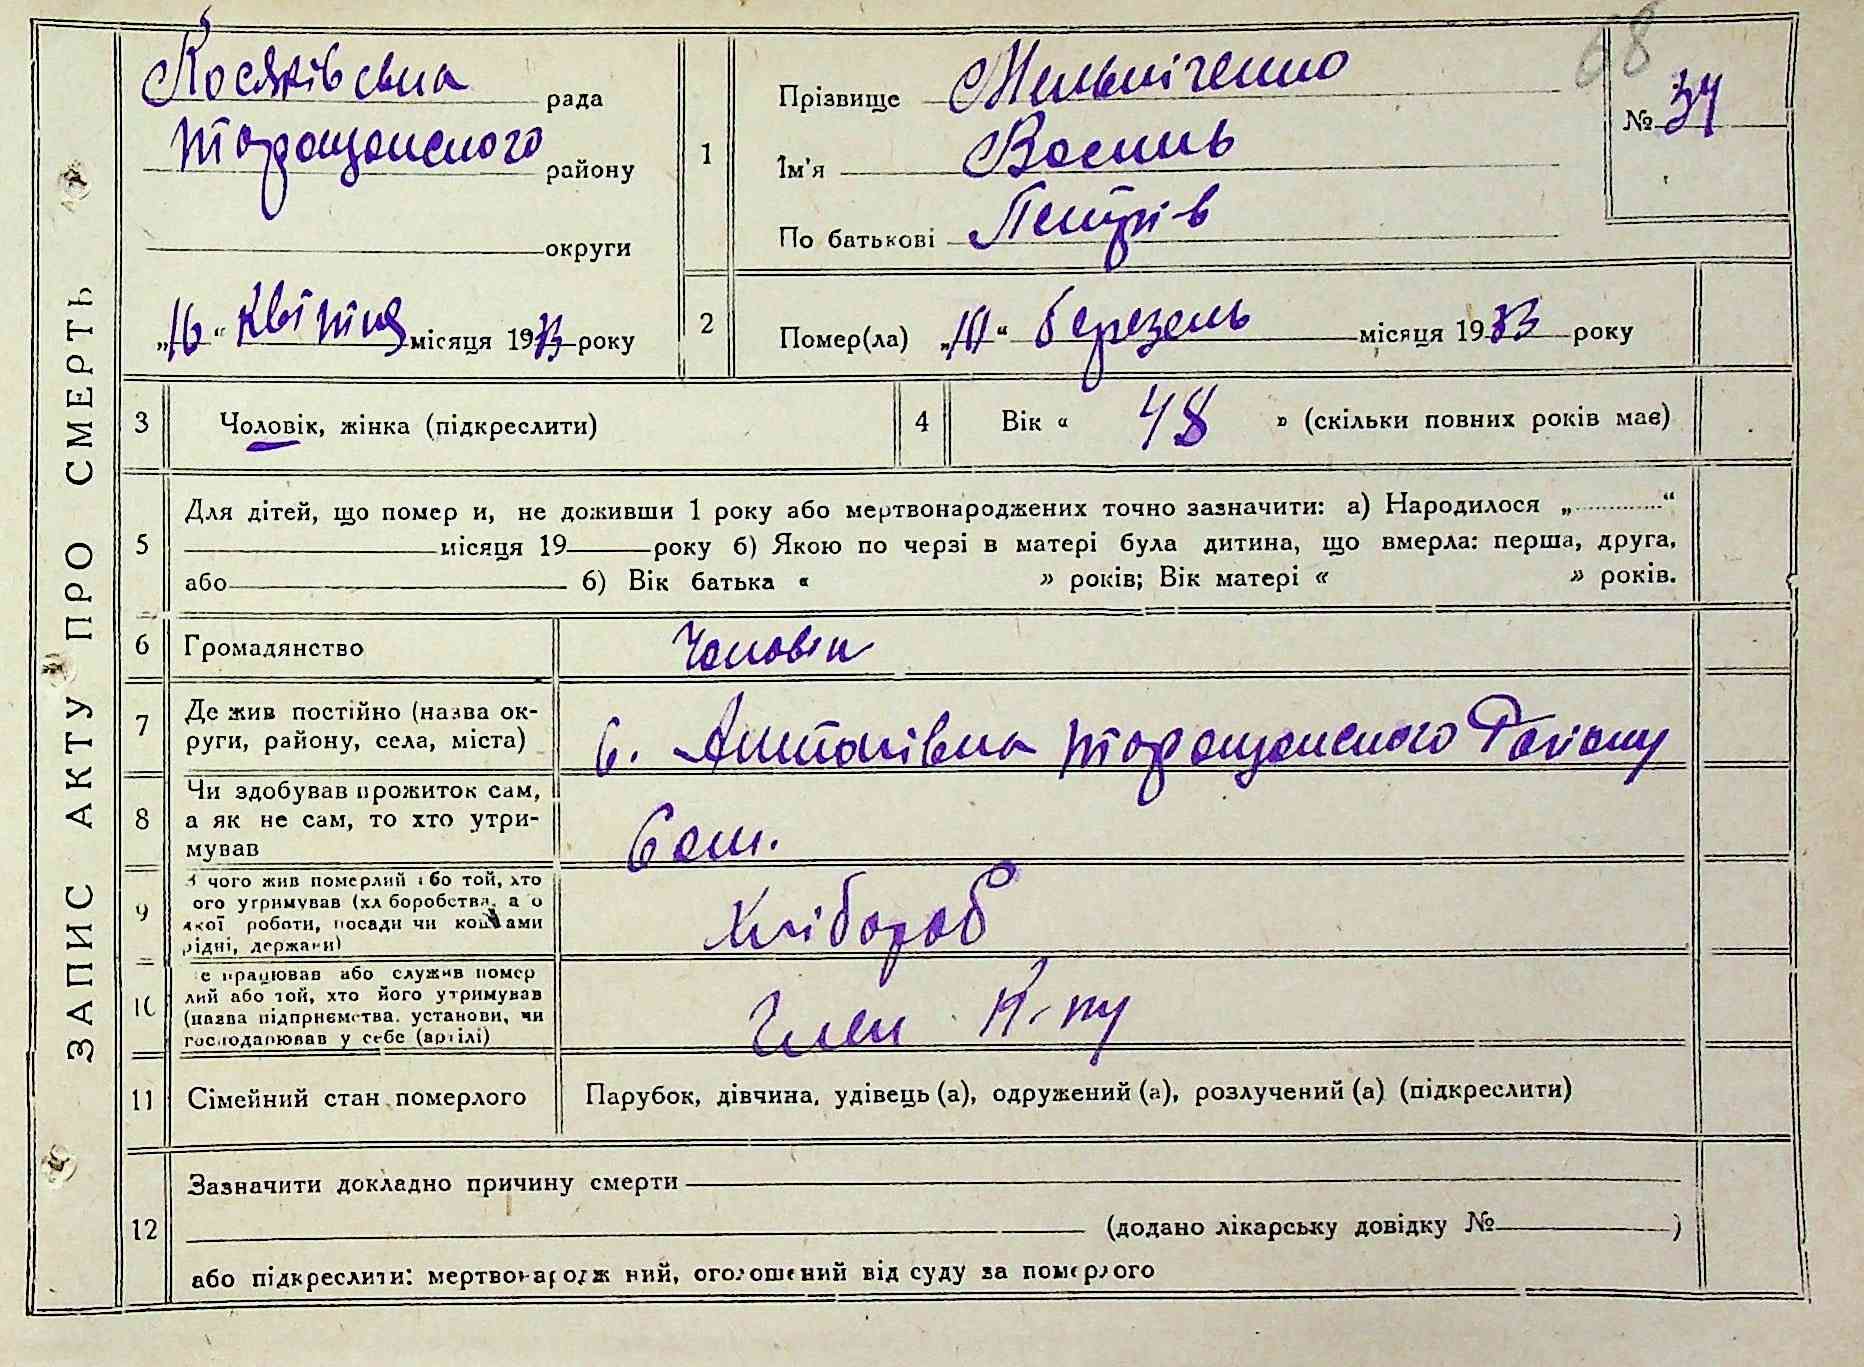 68
ЗАПИС АКТУ ПРО СМЕРТЬ
Косяківська рада
Таращанського району
округи
„16“ Квітня місяця 1933 року
1
Прізвище Мельніченко
Ім'я Василь
По батькові Петрів
№ 34
2
Помер(ла) „10“ березень місяця 1933 року
3
Чоловік, жінка (підкреслити)
4
Вік « 48 » (скільки повних років має)
5
Для дітей, що помер и, не доживши 1 року або мертвонароджених точно зазначити: а) Народилося „ “
місяця 19 року б) Якою по черзі в матері була дитина, що вмерла: перша, друга,
або б) Вік батька « » років; Вік матері « » років.
6
Громадянство
Чоловік
7
Де жив постійно (назва ок-
руги, району, села, міста)
с. Антонівка Таращанського Району
8
Чи здобував прожиток сам,
а як не сам, то хто утри-
мував
Сам.
9
З чого жив померлий або той, хто
його утримував (хліборобства, або
якої роботи, посади чи коштами
рідні, держави)
Хлібороб
10
Де працював або служив помер
лий або той, хто його утримував
(назва підприємства, установи, чи
господарював у себе (артілі)
Член К-пу
11
Сімейний стан померлого
Парубок, дівчина, удівець (а), одружений (а), розлучений (а) (підкреслити)
12
Зазначити докладно причину смерти
(додано лікарську довідку № )
або підкреслити: мертвонароджений, оголошений від суду за померлого